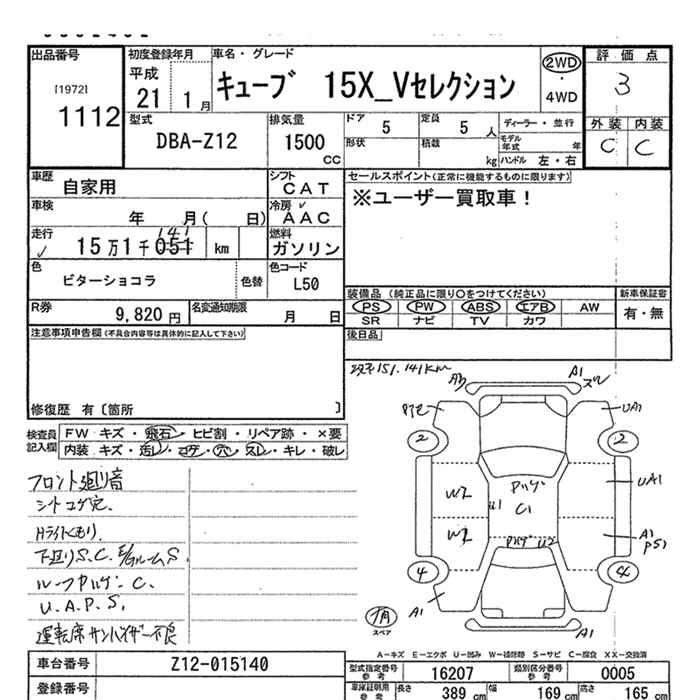 出品番号
[1972]
1112
初度登録年月
平成
21 1月
車名・グレード
キューブ 15X_Vセレクション
2WD
・
4WD
評価点
3
外装 内装
C C
型式
DBA-Z12
排気量
1500
CC
ドア
5
定員
5 人
ディーラー・並行
形状
積載
kg
モデル年式 年
ハンドル 左・右
車歴
自家用
シフト
CAT
セールスポイント(正常に機能するものに限ります)
※ユーザー買取車!
車検
年 月( 日)
冷房
AAC
走行
141
15万1千051 km
燃料
ガソリン
色
ビターショコラ
色替
色コード
L50
装備品 (純正品に限り○をつけてください)
PS PW ABS エアB AW
SR ナビ TV カワ
新車保証書
有・無
R券
9,820円
名変通知期限
月 日
後日品
注意事項申告欄(不具合内容等は具体的に記入して下さい)
修復歴 有〔箇所 〕
151.141km
検査員記入欄
FW キズ・飛石・ヒビ割・リペア跡・×要
内装 キズ・汚レ・コゲ・穴・スレ・キレ・破レ
フロント廻り音
シートコゲ穴.
Hライトくもり.
下廻りS.C. E/GルームS.
ルーフPハゲ. C.
U.A.P.S.
運転席サンバイザー不良
A3
A1
スレ
UA1
2
2
W2
W2
U1
Pハゲ
C1
Pハゲ U2
UA1
A1
PS1
4
4
A1
A1
スペア
A-キズ E-エクボ U-凹み W-補修跡 S-サビ C-腐食 XX-交換済
車台番号
Z12-015140
型式指定番号
参考
16207
類別区分番号
参考
0005
登録番号
車庫証明用
参考
長さ
389 cm
幅
169 cm
高さ
165 cm